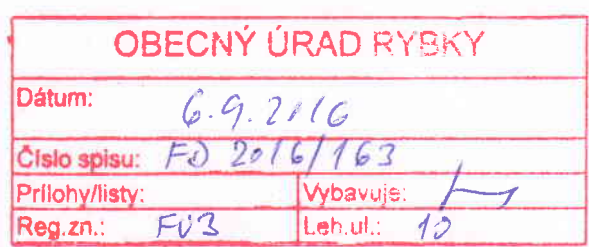 OBECNÝ ÚRAD RYBKY
Dátum: 6.9.2016
Číslo spisu: FD 2016/163
Prílohy/listy: Vybavuje:
Reg.zn.: FÚ3 Leh.ul.: 10